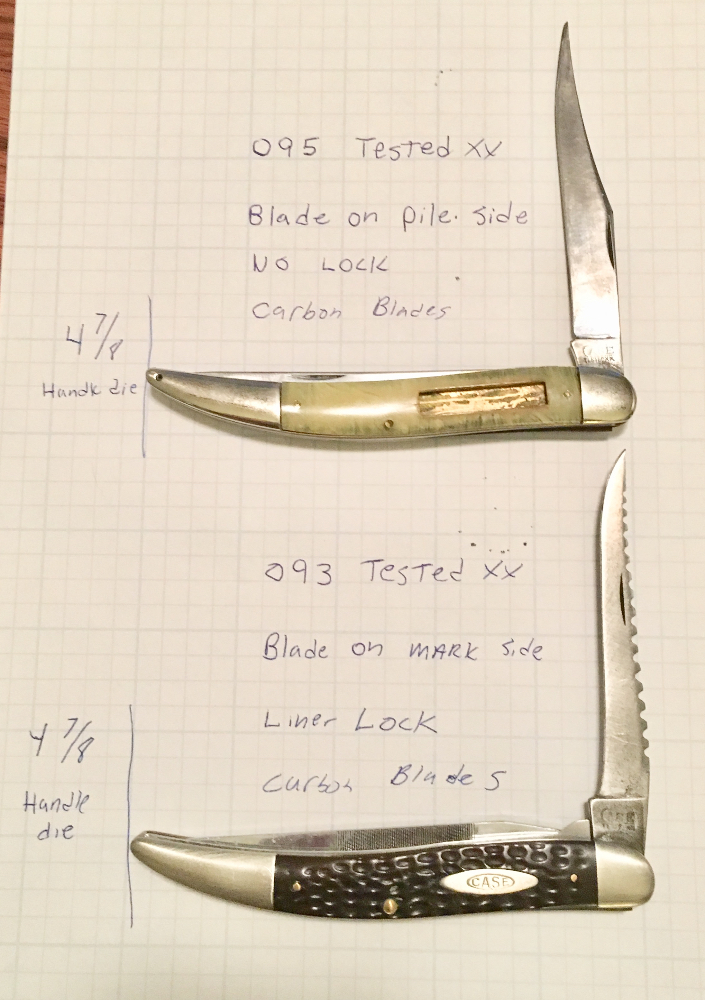 095 Tested XX
Blade on pile. side
NO LOCK
Carbon Blades
4 7/8
Handle die
093 Tested XX
Blade on MARK side
Liner LOCK
Carbon Blades
4 7/8
Handle
die
CASE